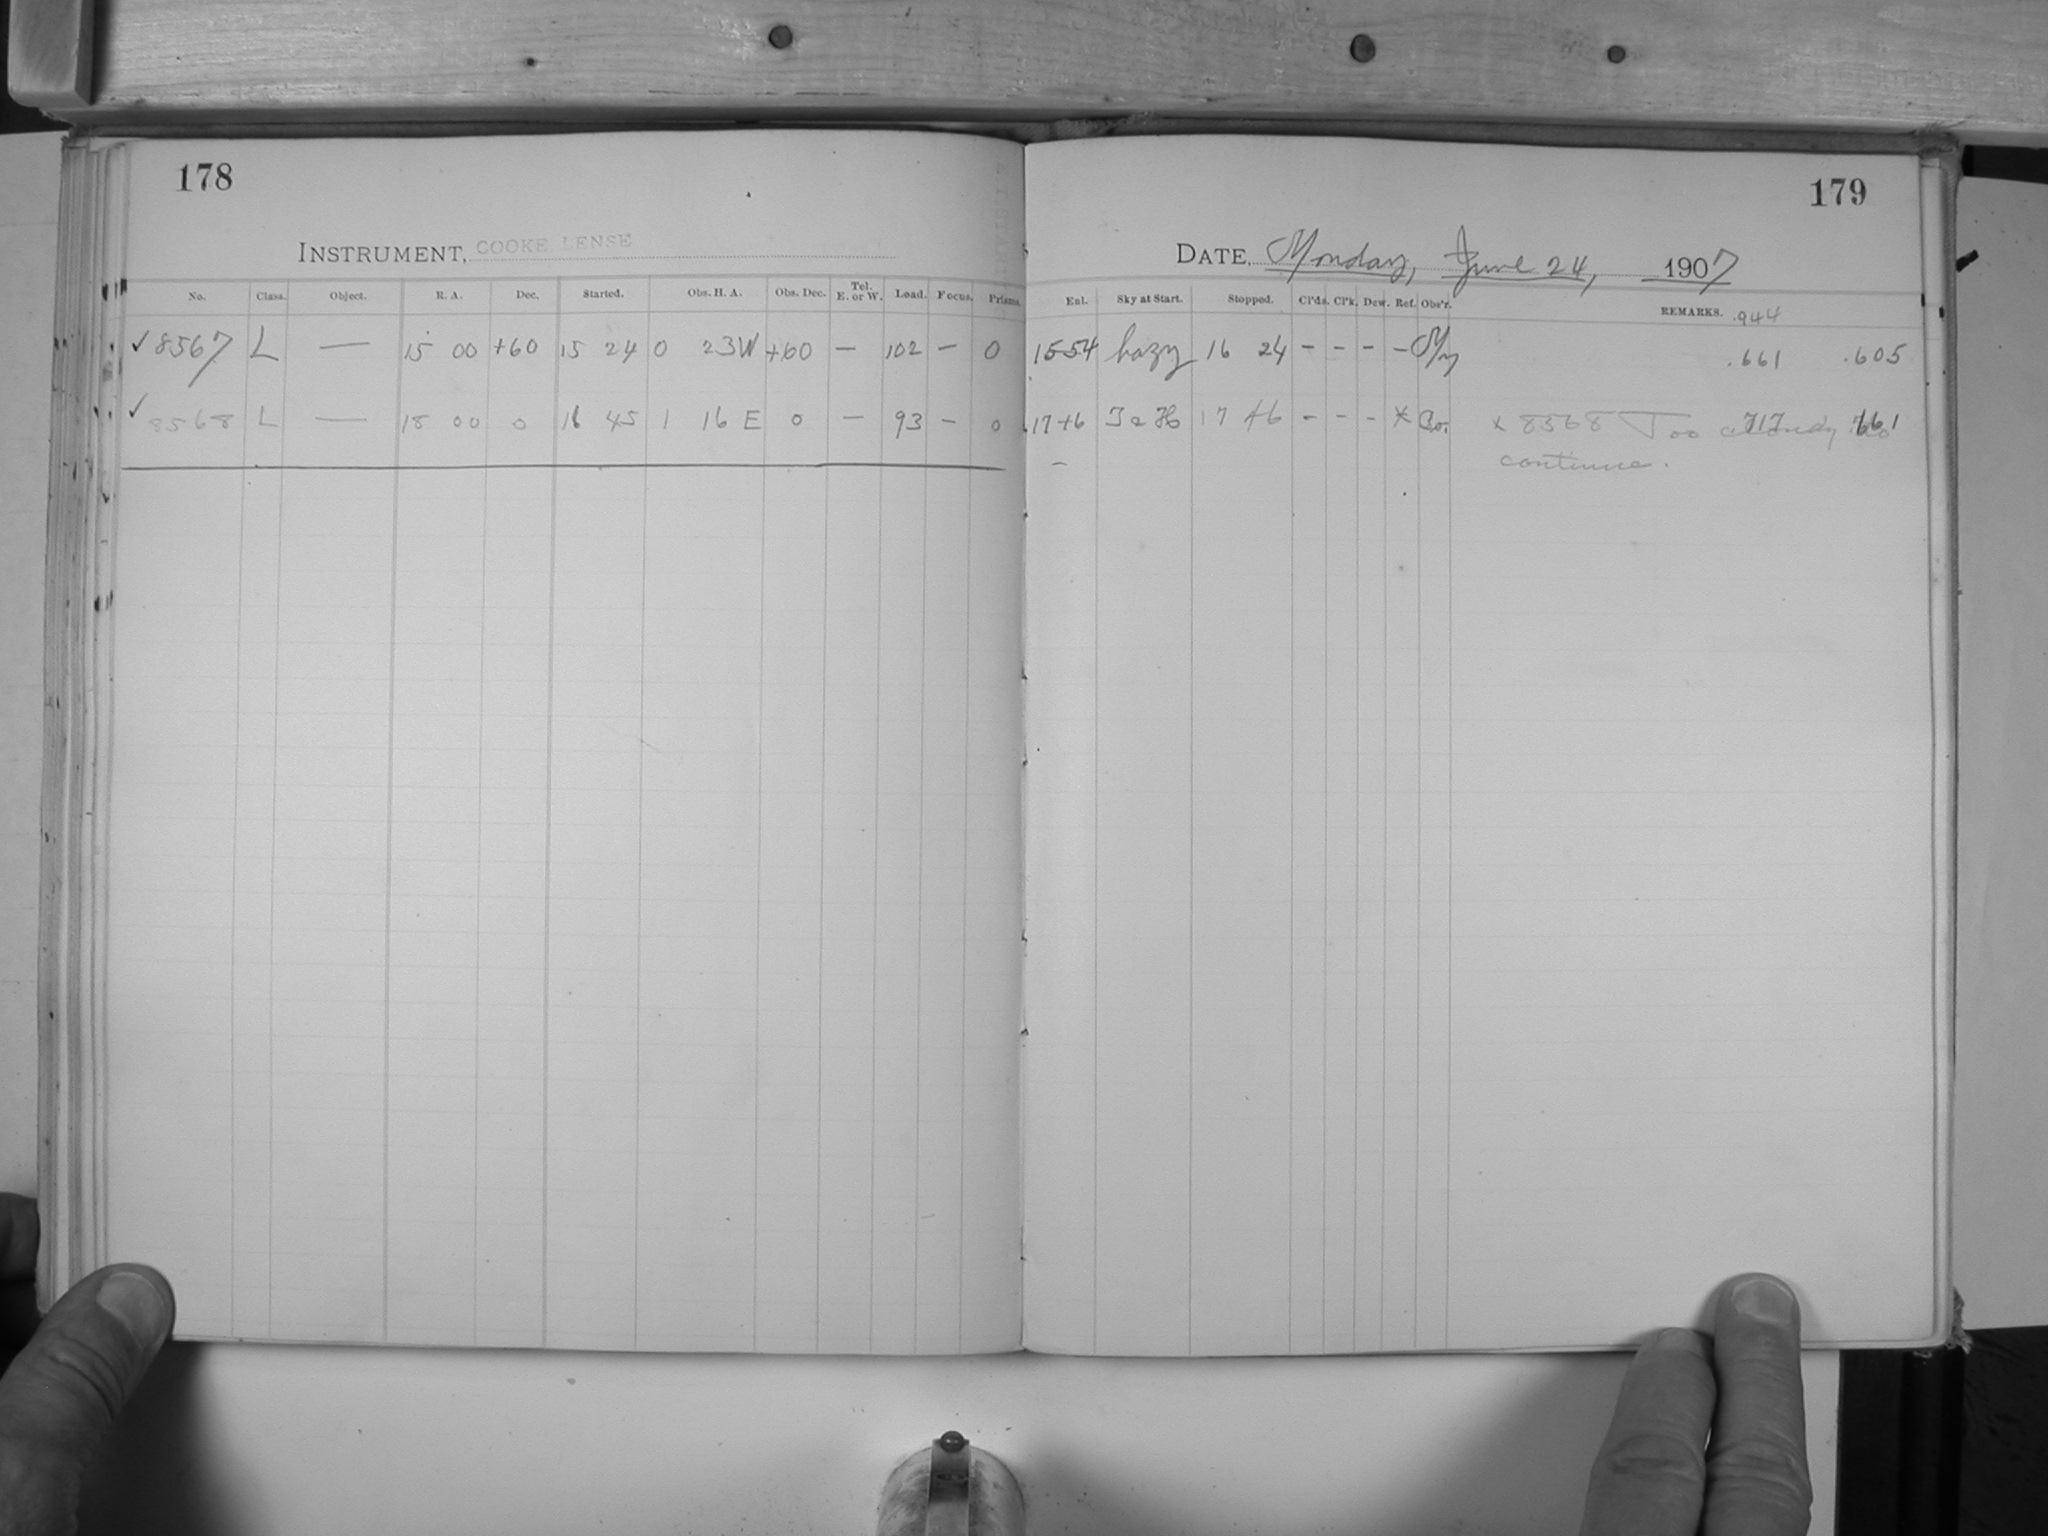 178
INSTRUMENT, COOKE LENSE
No. Class. Object. R. A. Dec. Started. Obs. H. A. Obs. Dec. Tel. E. or W. Load. Focus. Prisms.
✓ 8567 L — 15 00 +60 15 24 0 23W +60 — 102 — 0
✓ 8568 L — 18 00 0 16 45 1 16 E 0 — 93 — 0
179
DATE, Monday, June 24, 1907
Exl. Sky at Start. Stopped. Cl'ds. Cl'k. Dew. Ref. Obs'r. REMARKS. .944
1554 hazy 16 24 - - - - .661 .605
17 46 17 46 - - - x Co. x 8568 Too cloudy to .717 .661
continue.